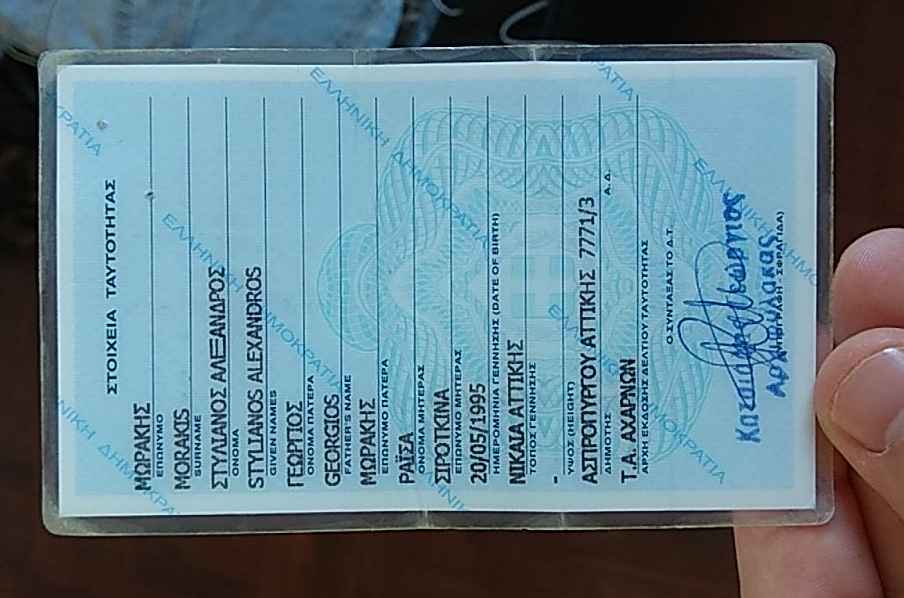 ΣΤΟΙΧΕΙΑ ΤΑΥΤΟΤΗΤΑΣ
ΜΩΡΑΚΗΣ
ΕΠΩΝΥΜΟ
MORAKIS
SURNAME
ΣΤΥΛΙΑΝΟΣ ΑΛΕΞΑΝΔΡΟΣ
ΟΝΟΜΑ
STYLIANOS ALEXANDROS
GIVEN NAMES
ΓΕΩΡΓΙΟΣ
ΟΝΟΜΑ ΠΑΤΕΡΑ
GEORGIOS
FATHER'S NAME
ΜΩΡΑΚΗΣ
ΕΠΩΝΥΜΟ ΠΑΤΕΡΑ
ΡΑΪΣΑ
ΟΝΟΜΑ ΜΗΤΕΡΑΣ
ΣΙΡΟΤΚΙΝΑ
ΕΠΩΝΥΜΟ ΜΗΤΕΡΑΣ
20/05/1995
ΗΜΕΡΟΜΗΝΙΑ ΓΕΝΝΗΣΗΣ (DATE OF BIRTH)
ΝΙΚΑΙΑ ΑΤΤΙΚΗΣ
ΤΟΠΟΣ ΓΕΝΝΗΣΗΣ
-
ΥΨΟΣ (HEIGHT)
ΑΣΠΡΟΠΥΡΓΟΥ ΑΤΤΙΚΗΣ 7771/3
ΔΗΜΟΤΗΣ Α.Δ.
Τ.Α. ΑΧΑΡΝΩΝ
ΑΡΧΗ ΕΚΔΟΣΗΣ ΔΕΛΤΙΟΥ ΤΑΥΤΟΤΗΤΑΣ
Ο ΣΥΝΤΑΞΑΣ ΤΟ Δ.Τ.
Γεώργιος
Αρχιφύλακας
ΕΛΛΗΝΙΚΗ ΔΗΜΟΚΡΑΤΙΑ
ΕΛΛΗΝΙΚΗ ΔΗΜΟΚΡΑΤΙΑ
ΕΛΛΗΝΙΚΗ ΔΗΜΟΚΡΑΤΙΑ